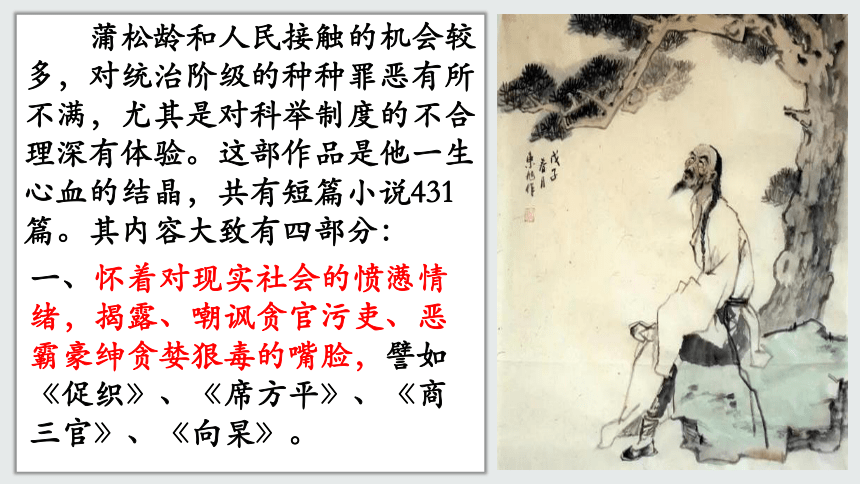 蒲松龄和人民接触的机会较
多，对统治阶级的种种罪恶有所
不满，尤其是对科举制度的不合
理深有体验。这部作品是他一生
心血的结晶，共有短篇小说431
篇。其内容大致有四部分：
一、怀着对现实社会的愤懑情
绪，揭露、嘲讽贪官污吏、恶
霸豪绅贪婪狠毒的嘴脸，譬如
《促织》、《席方平》、《商
三官》、《向杲》。
戊子
春月